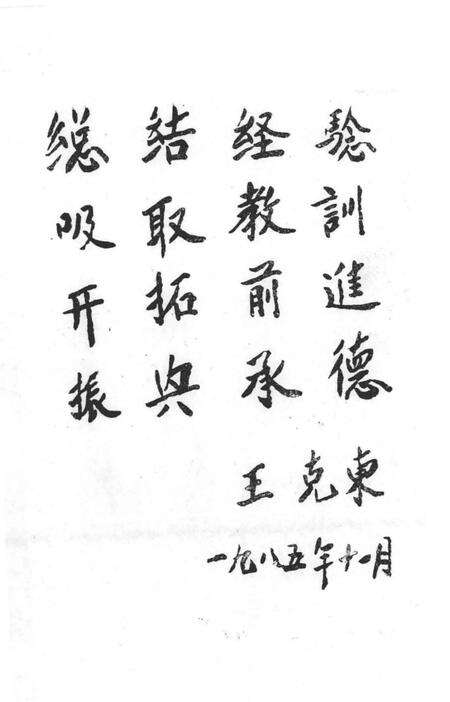 總结経驗
吸取教訓
开拓前進
振兴承德
王克東
一九八五年十一月